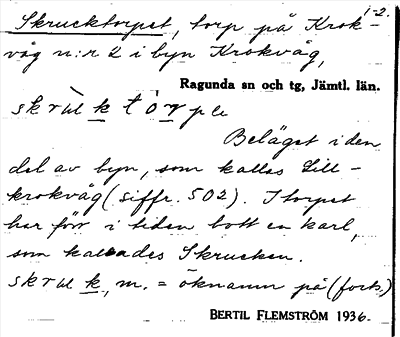 1-2.
Skrucktorpet, torp på Krok-
våg n:r 2 i byn Krokvåg,
Ragunda sn och tg, Jämtl. län.
Beläget i den
del av byn, som kallas Lill-
krokvåg (siffr. 502). I torpet
har förr i tiden bott en karl,
som kallades Skrucken.
m. = öknamn på (forts.)
BERTIL FLEMSTRÖM 1936.